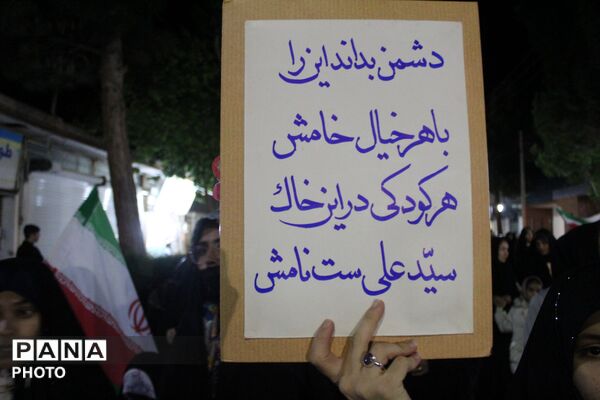 دشمن بداند این را
با هر خیال خامش
هر کودکی در این خاک
سیّد علی ست نامش
PANA
PHOTO